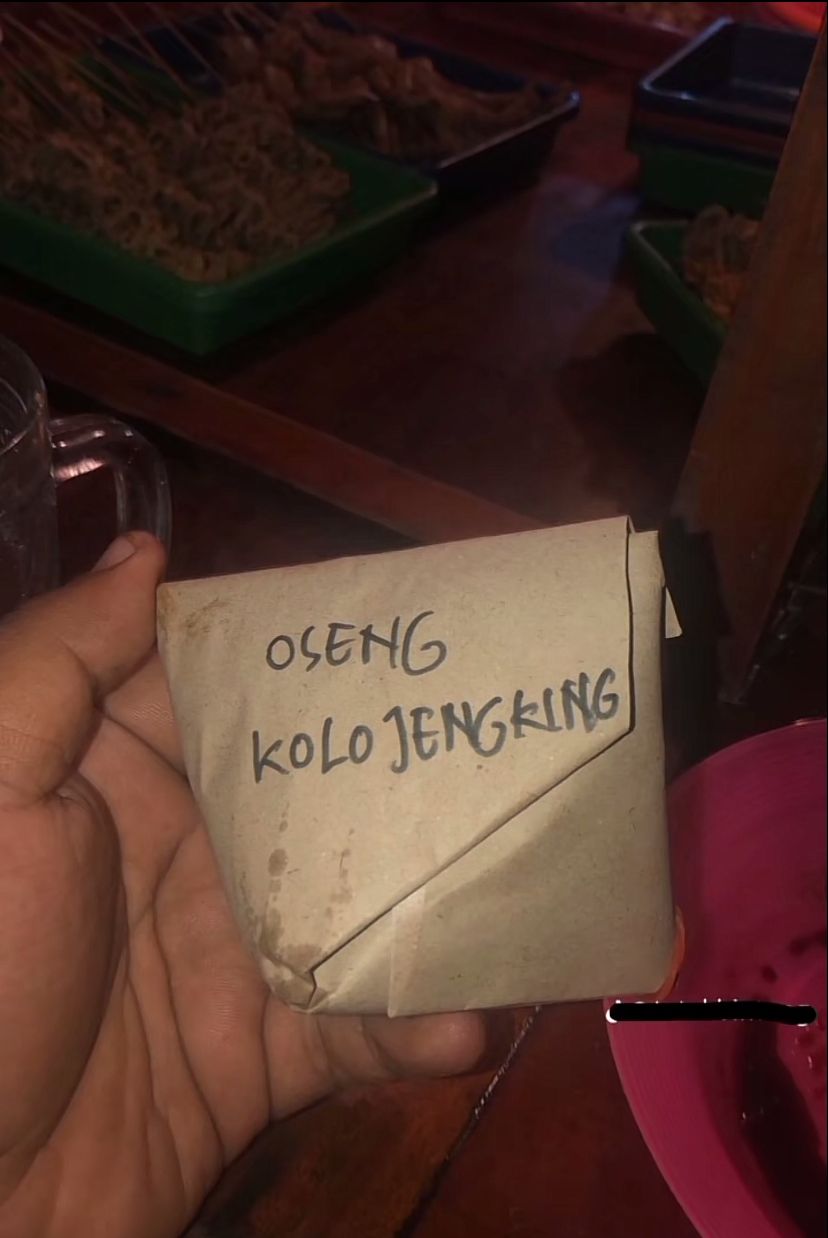 OSENG
KOLOJENGKING